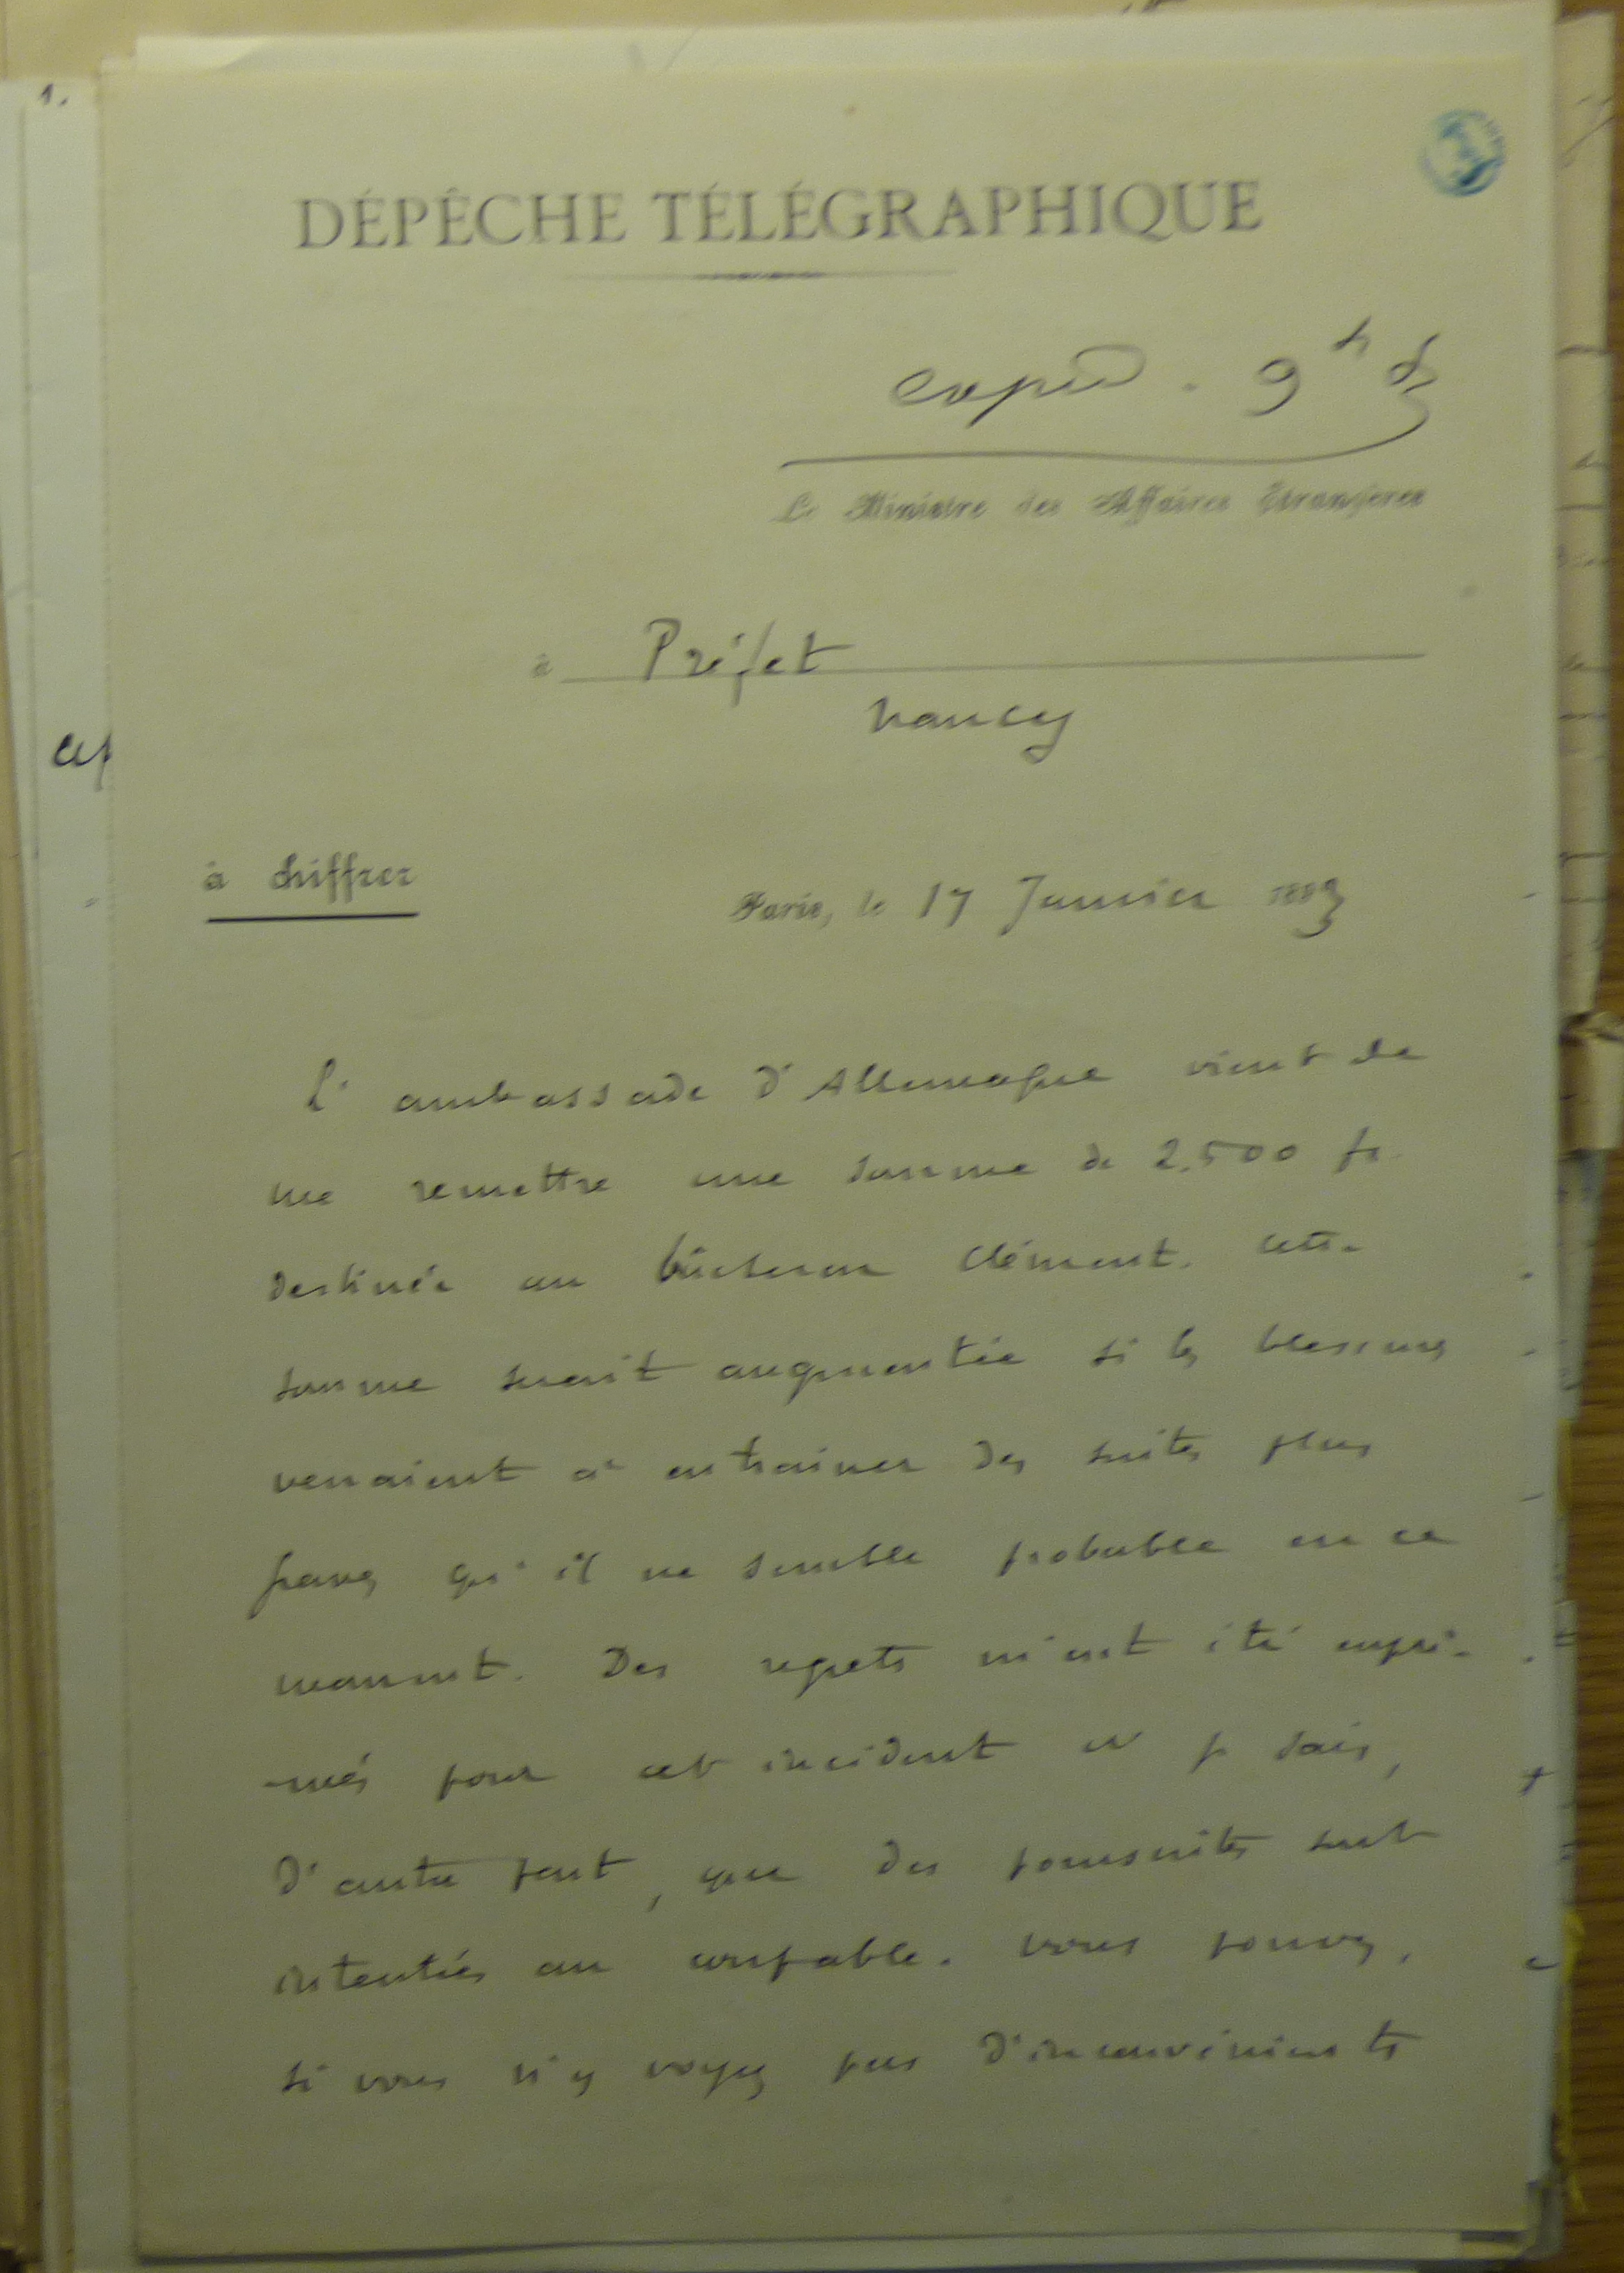 1.
DÉPÊCHE TÉLÉGRAPHIQUE
expéd. 9 h
Le Ministre des Affaires Étrangères
à Préfet
Nancy
à chiffrer
Paris, le 17 Janvier 188
L'ambassade d'Allemagne vient de
me remettre une somme de 2.500 fr.
destinée au bûcheron Clément. Cette
somme serait augmentée si les blessures
venaient à entraîner des suites plus
graves qu'il ne semble probable en ce
moment. Des regrets m'ont été expri-
-més pour cet incident et je sais,
d'autre part, que des poursuites sont
intentées au coupable. Vous pouvez,
si vous n'y voyez pas d'inconvénients